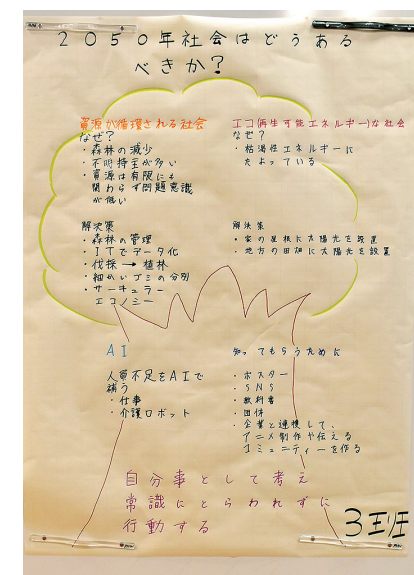 2050年社会はどうある
べきか?
資源が循環される社会
なぜ?
・森林の減少
・不明持主が多い
・資源は有限にも
関わらず問題意識
が低い
解決策
・森林の管理
・ITでデータ化
・伐採→植林
・細かいゴミの分別
・サーキュラー
エコノミー
エコ(再生可能エネルギー)な社会
なぜ?
・枯渇性エネルギーに
たよっている
解決策
・家の屋根に太陽光を設置
・地方の田畑に太陽光を設置
AI
人員不足をAIで
補う
・仕事
・介護ロボット
知ってもらうために
・ポスター
・SNS
・教科書
・団体
・企業と連携して、
アニメ制作や伝える
コミュニティーを作る
自分事として考え
常識にとらわれずに
行動する
3班